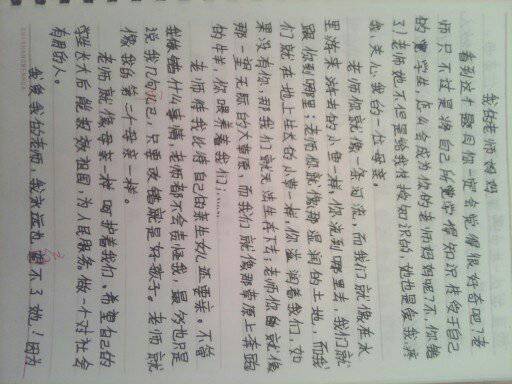 我的老师妈妈
看到这个题目你一定会觉得很好奇吧？老
师只不过是将自己所觉得知识传于自己
的学生，怎么会成为你的老师妈妈呢？不，你错
了！老师她不但是给我传授知识的，她也是爱我、疼
我、关心我的一位母亲。
老师你就像一条河流，而我们就像在水
里游来游去的小鱼一样，你流到哪里去，我们就
跟你到哪里；老师你就像那湿润的土地，而我
们就在地上生长的小草一样，你滋润着我们，如
果没有你，那我们就无法生存下去；老师你就像
那一望无际的大草原，而我们就像那草原上奔跑
的牛羊，你喂养着我们……
老师待我比待自己的亲生女儿还要亲。不管
我做错什么事情，老师都不会责怪我，最多也只是
说我几句，只要改错就是好孩子。老师就
像我的第二个母亲一样。
老师就像母亲一样呵护着我们，希望自己的
学生长大后能报效祖国，为人民服务。做一个对社会
有用的人。
我爱我的老师，我永远忘不了她！因为